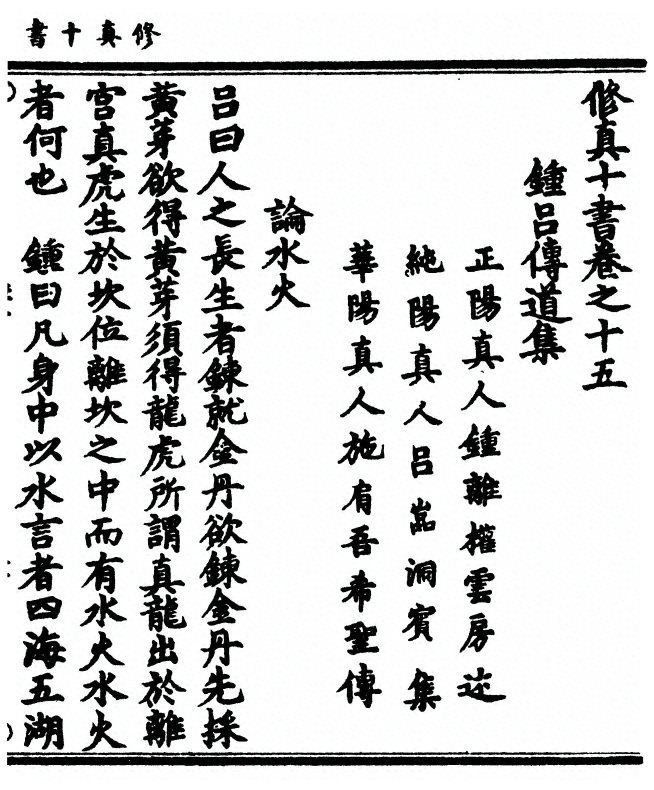 修真十書
修真十書卷之十五
鍾呂傳道集
正陽真人鍾離權雲房述
純陽真人呂嵓洞賓集
華陽真人施肩吾希聖傳
論水火
呂曰人之長生者鍊就金丹欲鍊金丹先採
黃芽欲得黃芽須得龍虎所謂真龍出於離
宮真虎生於坎位離坎之中而有水火水火
者何也　鍾曰凡身中以水言者四海五湖